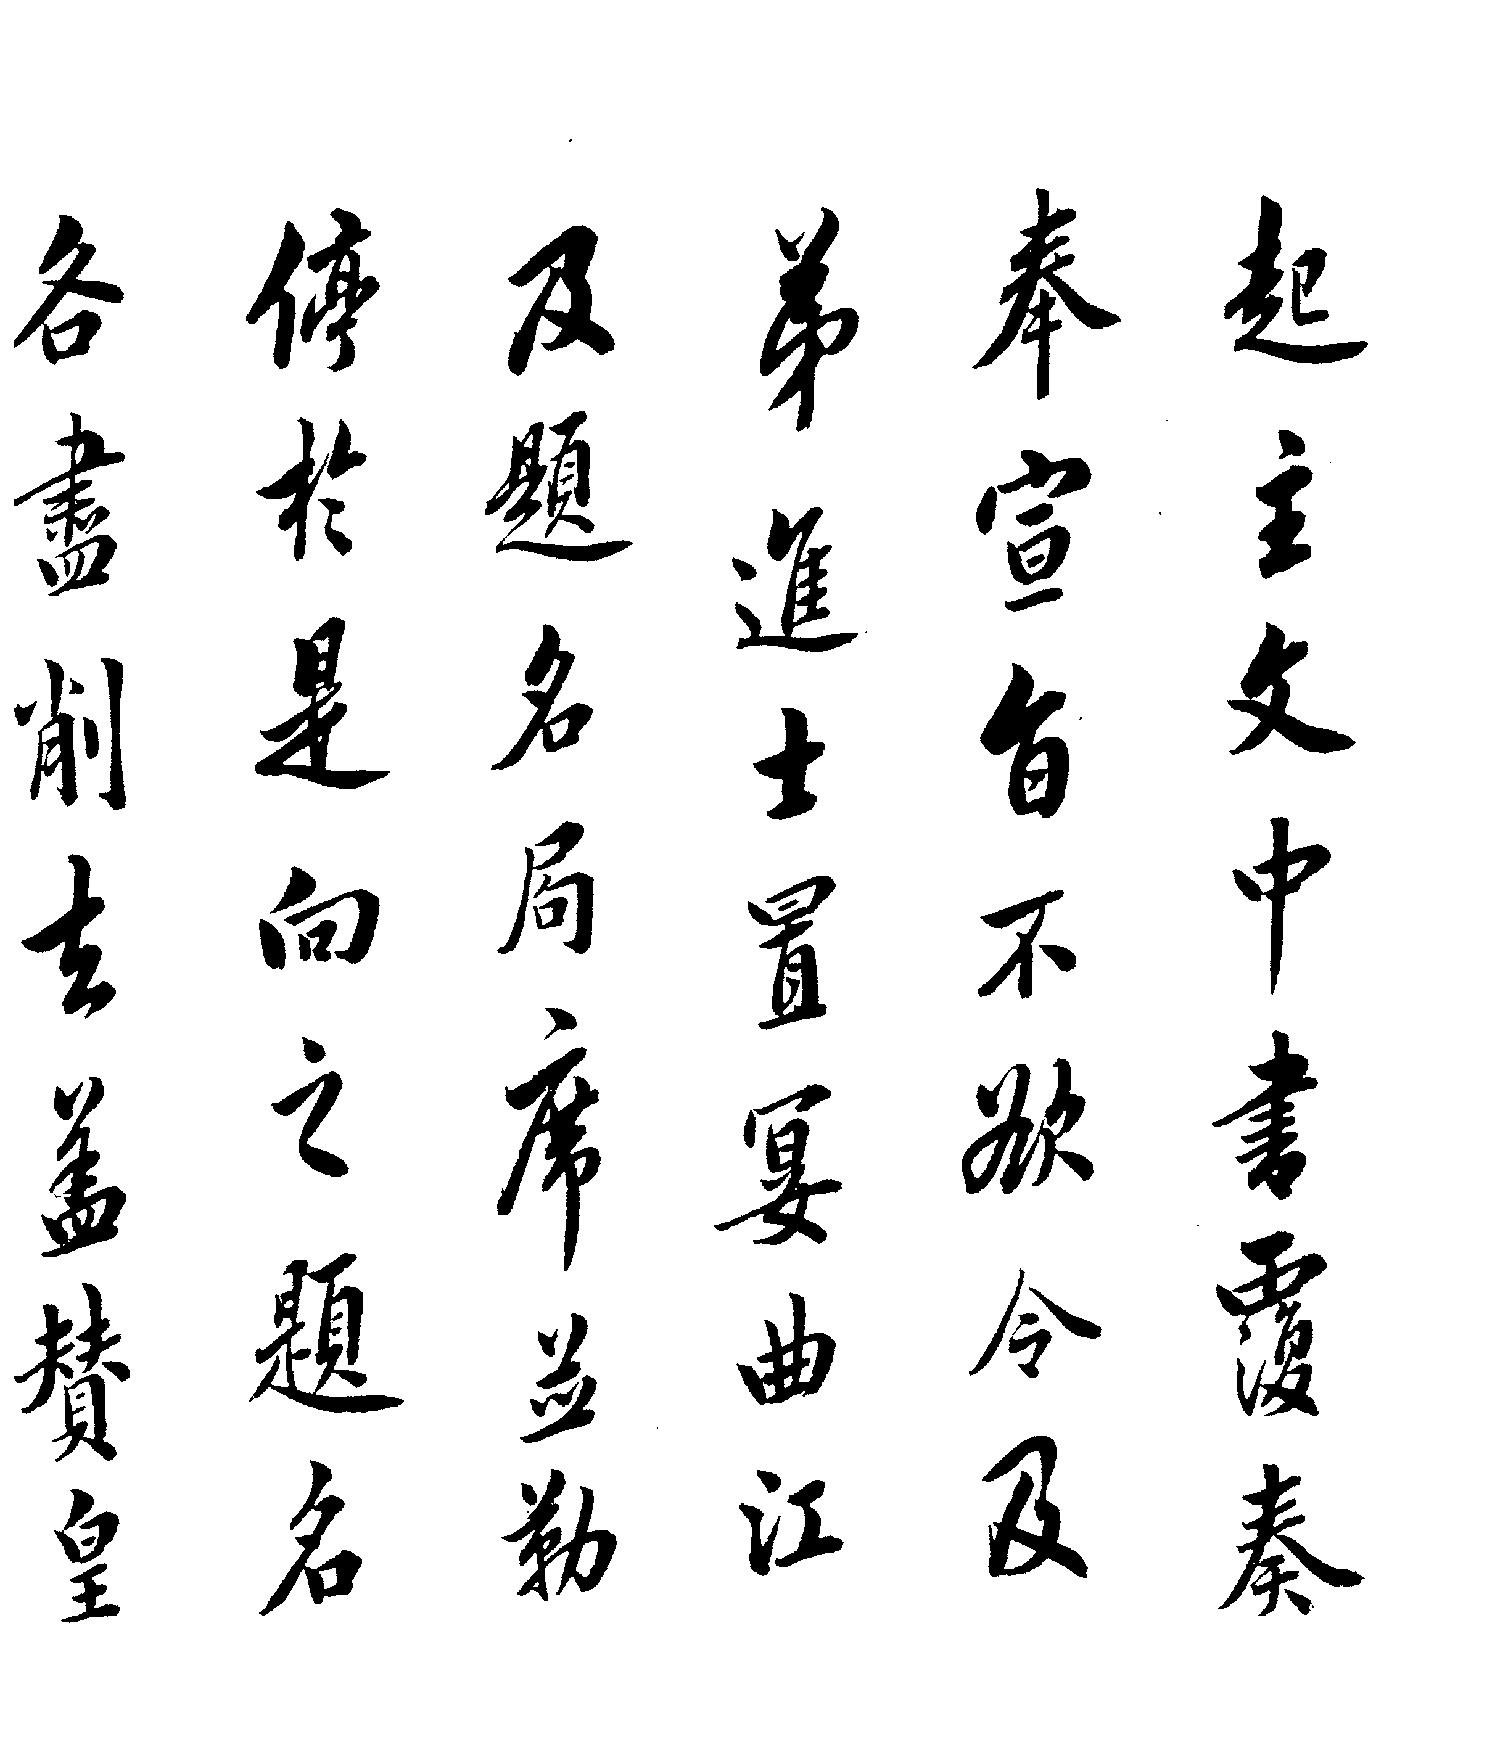 起主文中書覆奏
奉宣旨不欲令及
第進士置宴曲江
及題名局席並勒
停於是向之題名
各盡削去盖賛皇